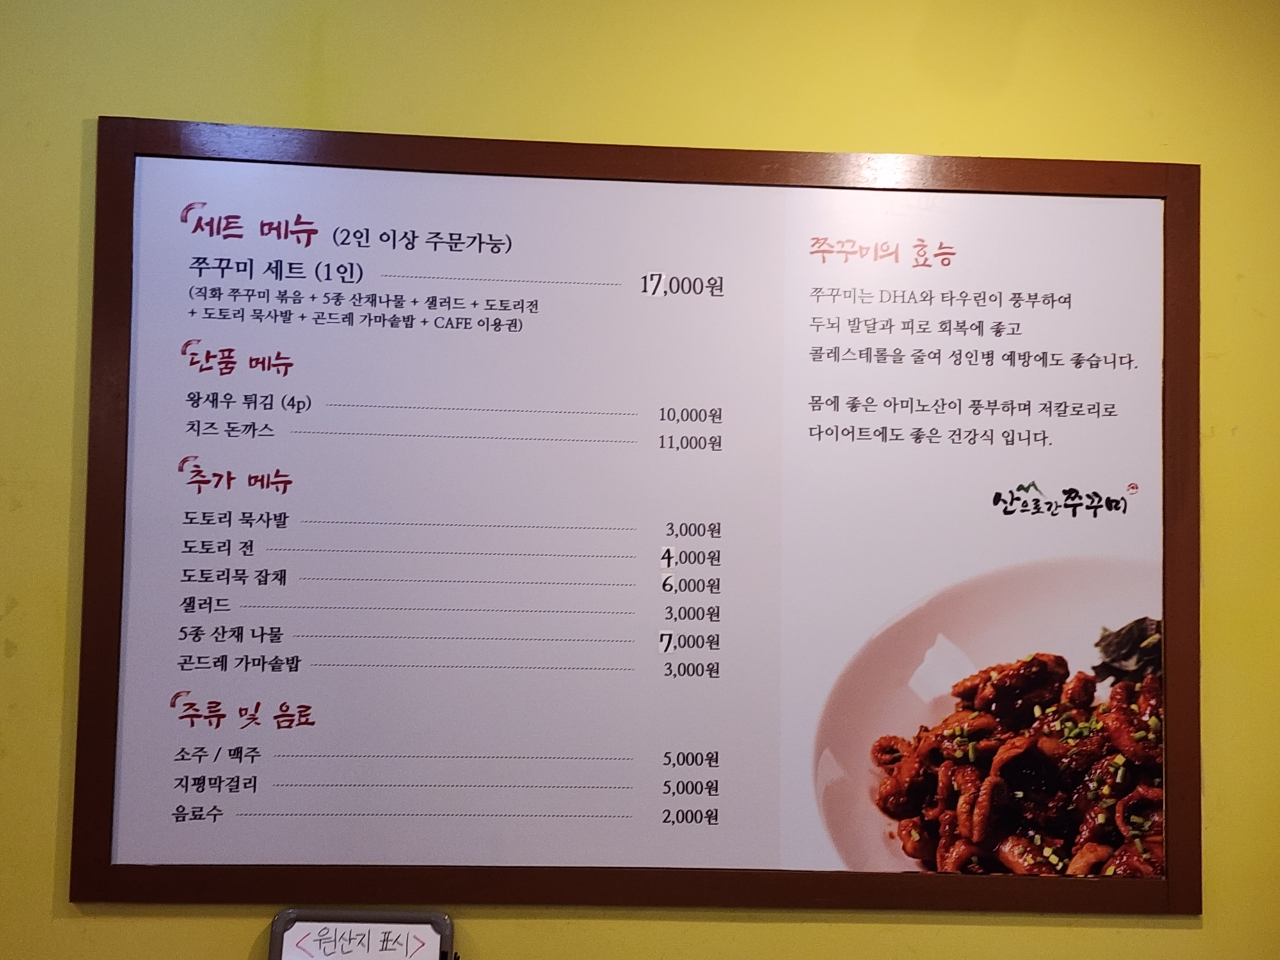 세트 메뉴 (2인 이상 주문가능)
쭈꾸미 세트 (1인) 17,000원
(직화 쭈꾸미 볶음 + 5종 산채나물 + 샐러드 + 도토리전
+ 도토리 묵사발 + 곤드레 가마솥밥 + CAFE 이용권)
단품 메뉴
왕새우 튀김 (4p) 10,000원
치즈 돈까스 11,000원
추가 메뉴
도토리 묵사발 3,000원
도토리 전 4,000원
도토리묵 잡채 6,000원
샐러드 3,000원
5종 산채 나물 7,000원
곤드레 가마솥밥 3,000원
주류 및 음료
소주 / 맥주 5,000원
지평막걸리 5,000원
음료수 2,000원
쭈꾸미의 효능
쭈꾸미는 DHA와 타우린이 풍부하여
두뇌 발달과 피로 회복에 좋고
콜레스테롤을 줄여 성인병 예방에도 좋습니다.
몸에 좋은 아미노산이 풍부하며 저칼로리로
다이어트에도 좋은 건강식 입니다.
산으로간쭈꾸미
<원산지 표시>